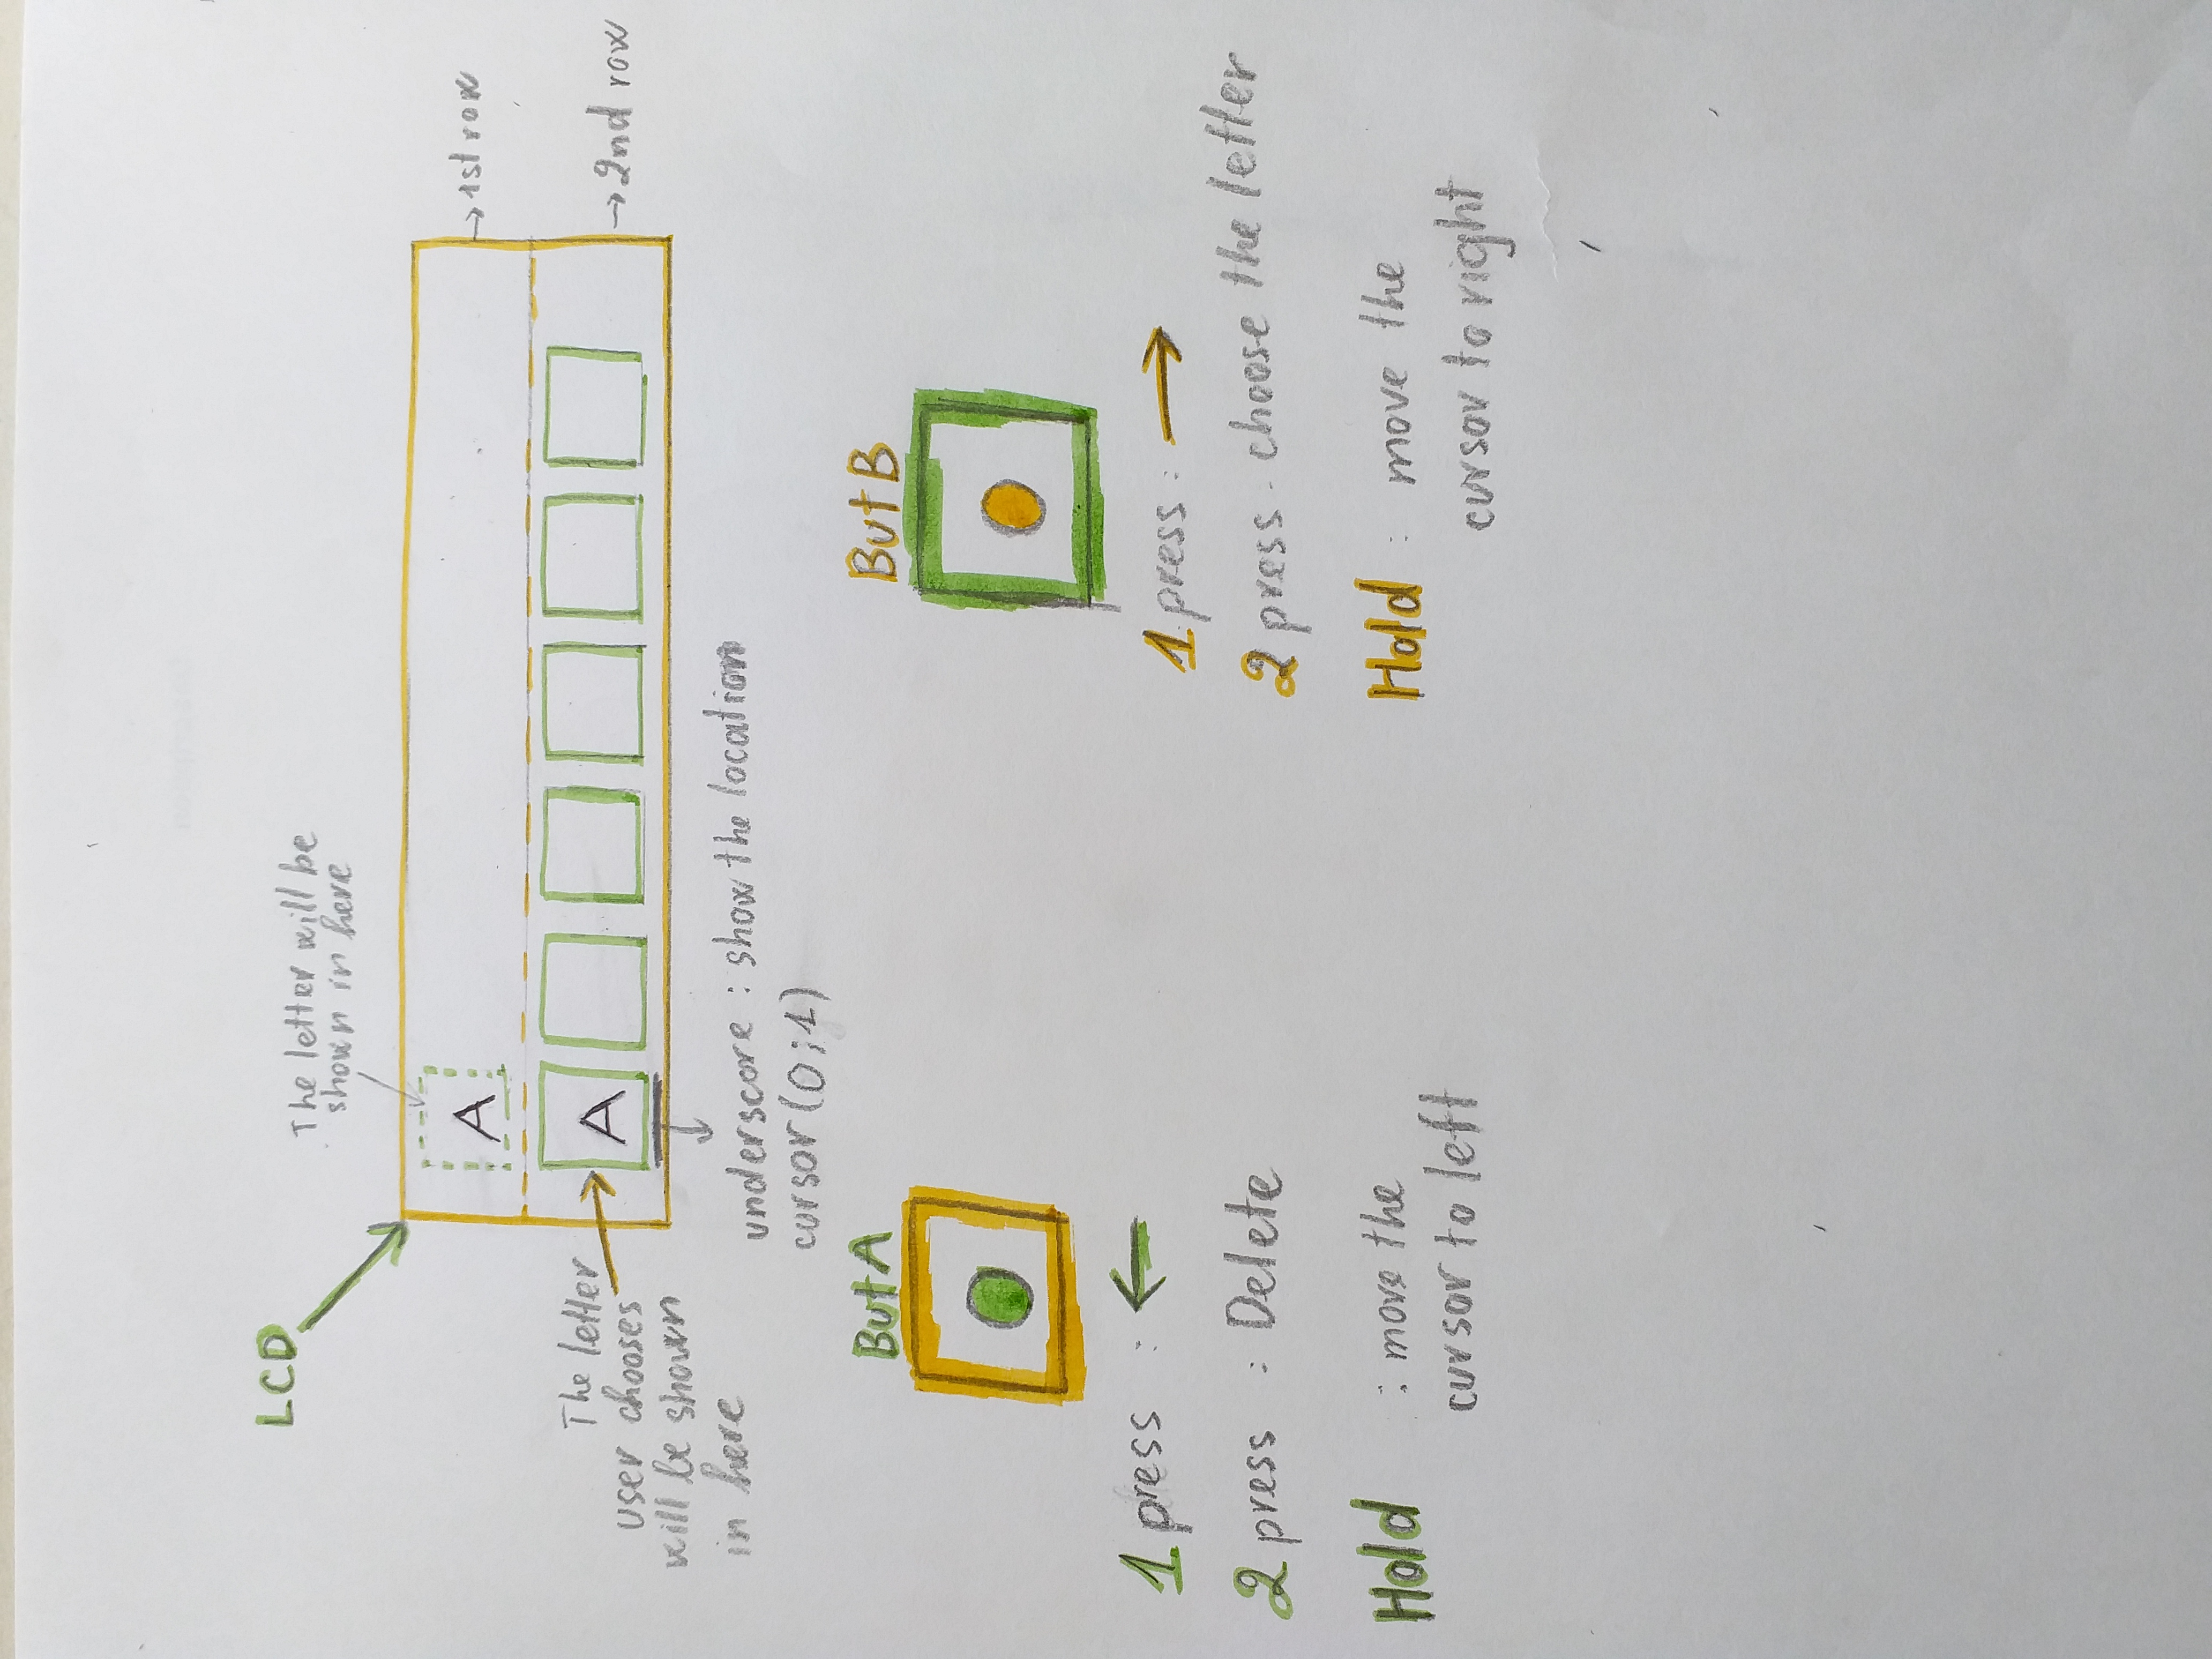 LCD
The letter will be
shown in here
A
→ 1st row
The letter
user chooses
will be shown
in here
A
→ 2nd row
underscore : show the location
cursor (0;1)
But A
But B
1 press : ←
2 press : Delete
Hold : move the
cursor to left
1 press : →
2 press . choose the letter
Hold : move the
cursor to right